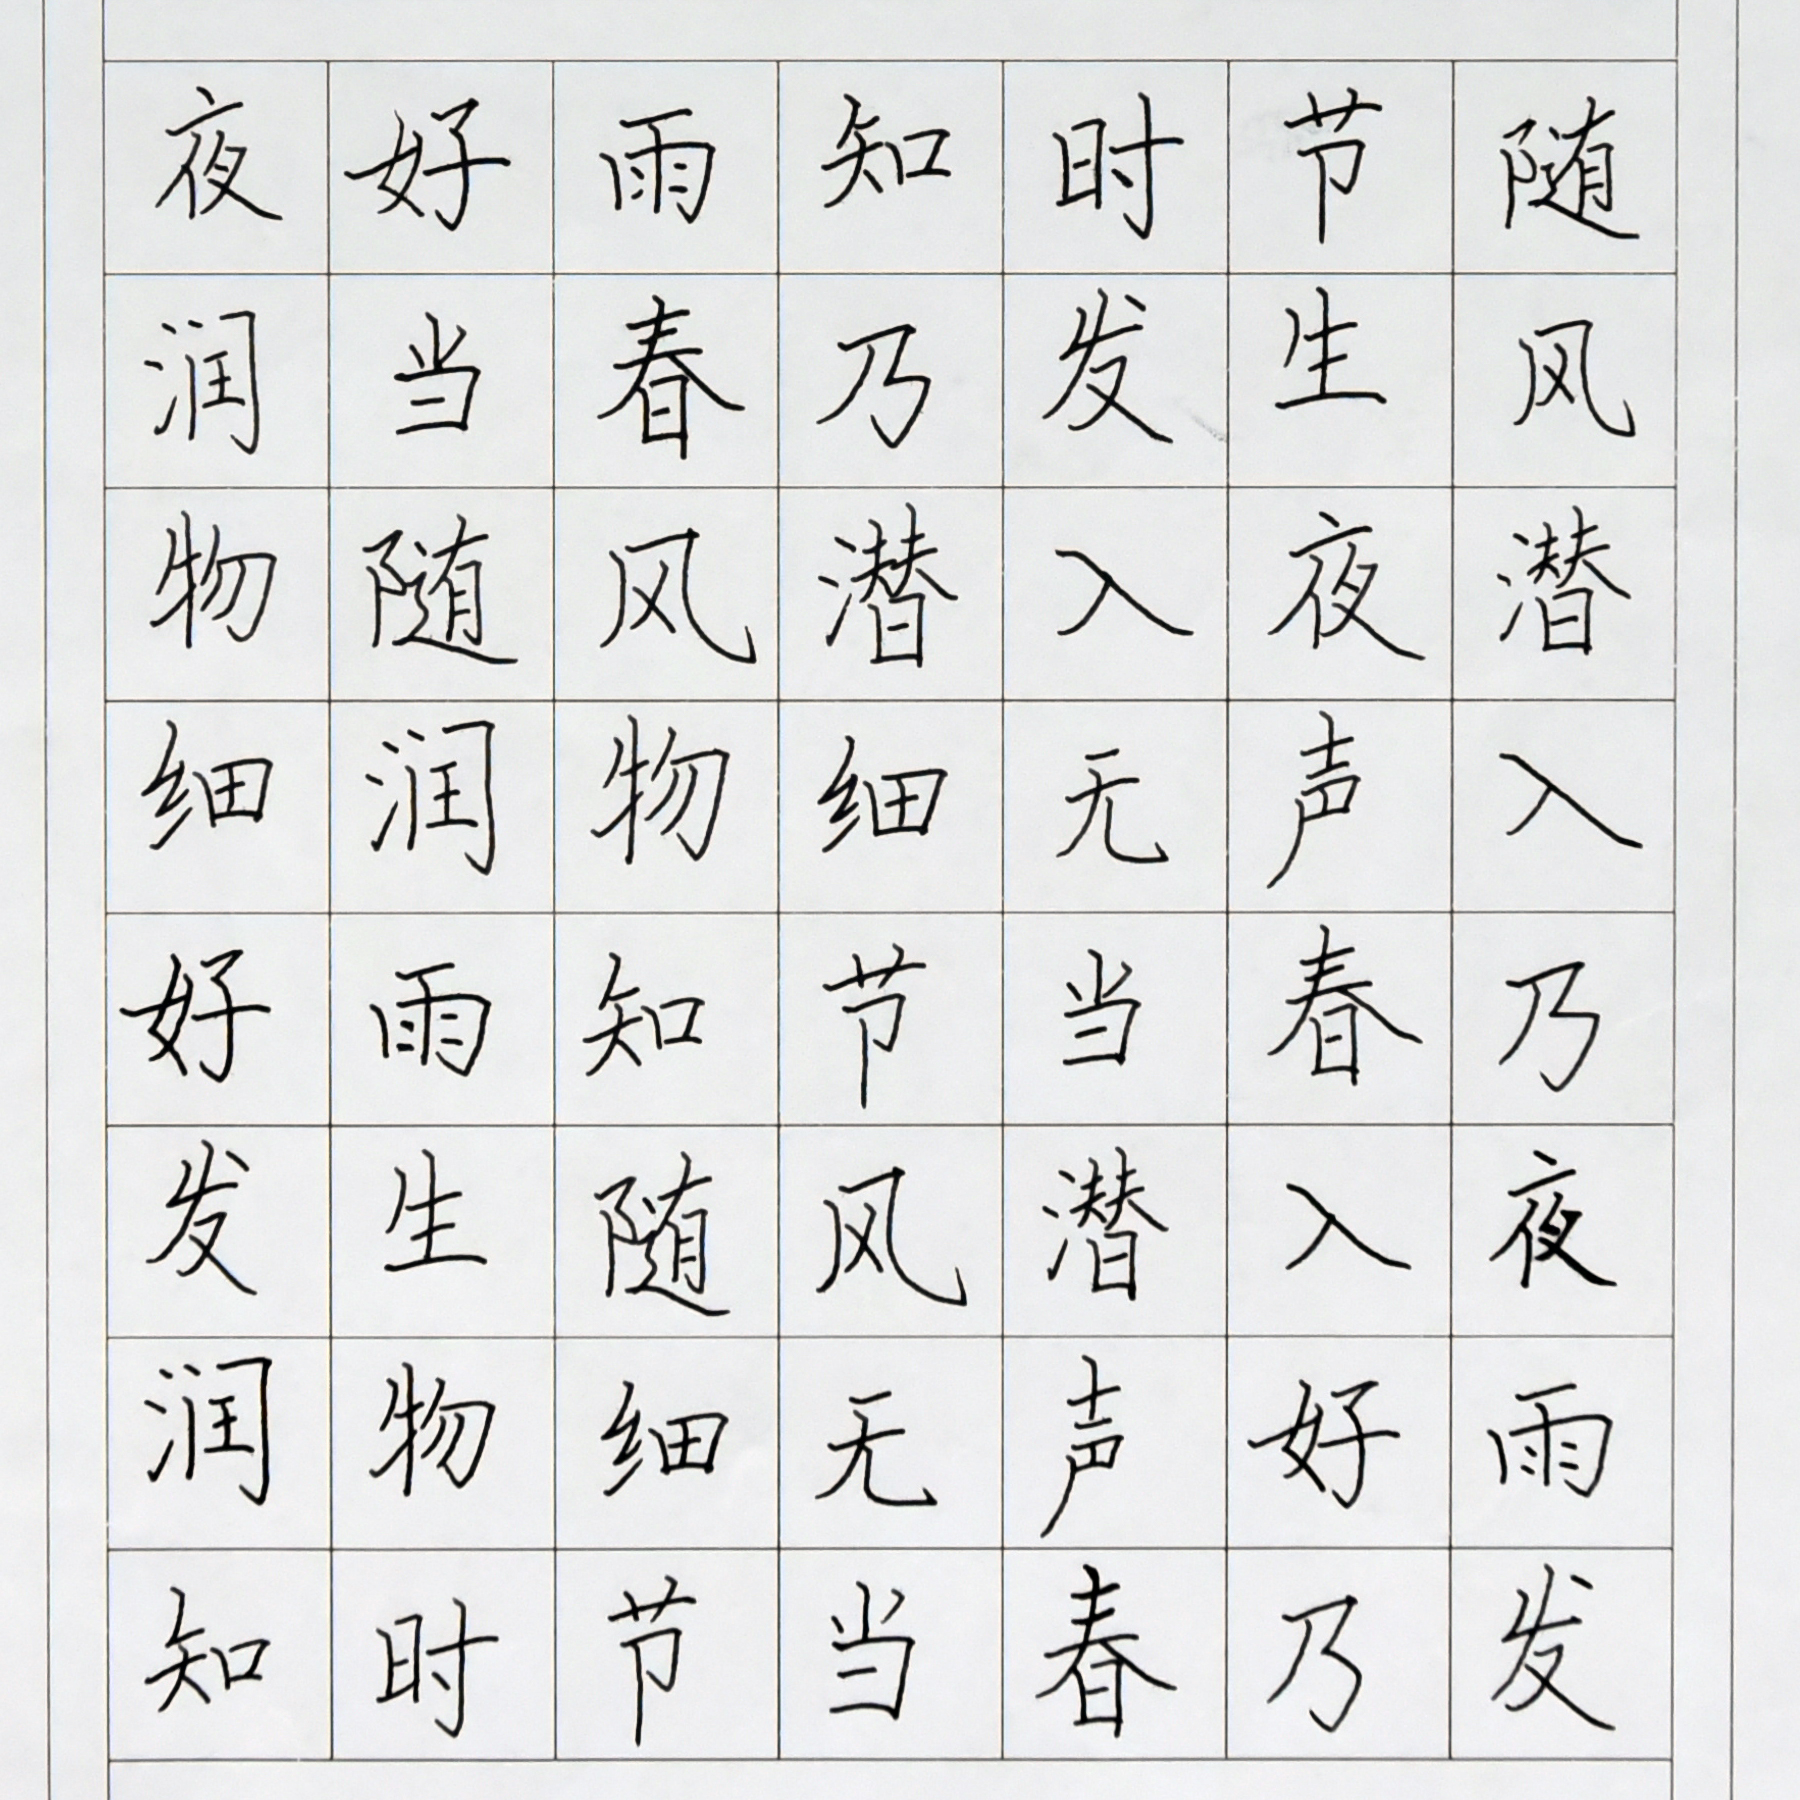 夜好雨知时节随
润当春乃发生风
物随风潜入夜潜
细润物细无声入
好雨知节当春乃
发生随风潜入夜
润物细无声好雨
知时节当春乃发